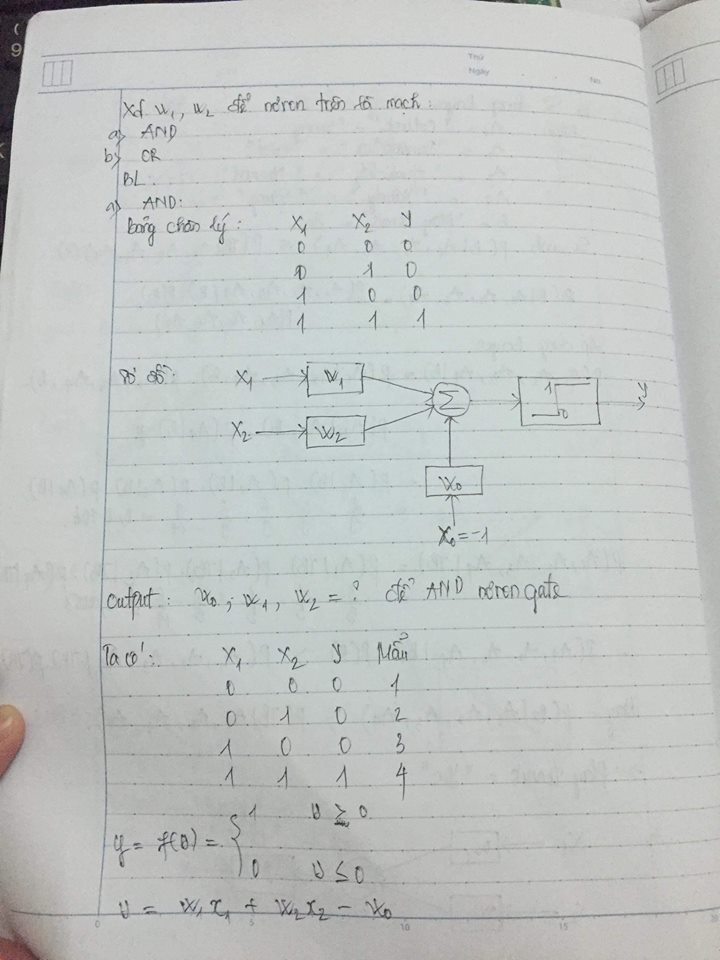 Thứ
Ngày
No.
Xđ w₁, w₂ để nơron trên là mạch:
a) AND
b) OR
BL:
a) AND:
Bảng chân lý: X₁ X₂ y
0 0 0
0 1 0
1 0 0
1 1 1
Sơ đồ: X₁ W₁ Σ 1 0 y
X₂ W₂
W₀
X₀=-1
Output: w₀, w₁, w₂ = ? để AND nơron gate
Ta có: X₁ X₂ y Mẫu
0 0 0 1
0 1 0 2
1 0 0 3
1 1 1 4
y = f(v) = { 1 v ≥ 0
0 v ≤ 0
v = w₁x₁ + w₂x₂ - w₀
0 5 10 15